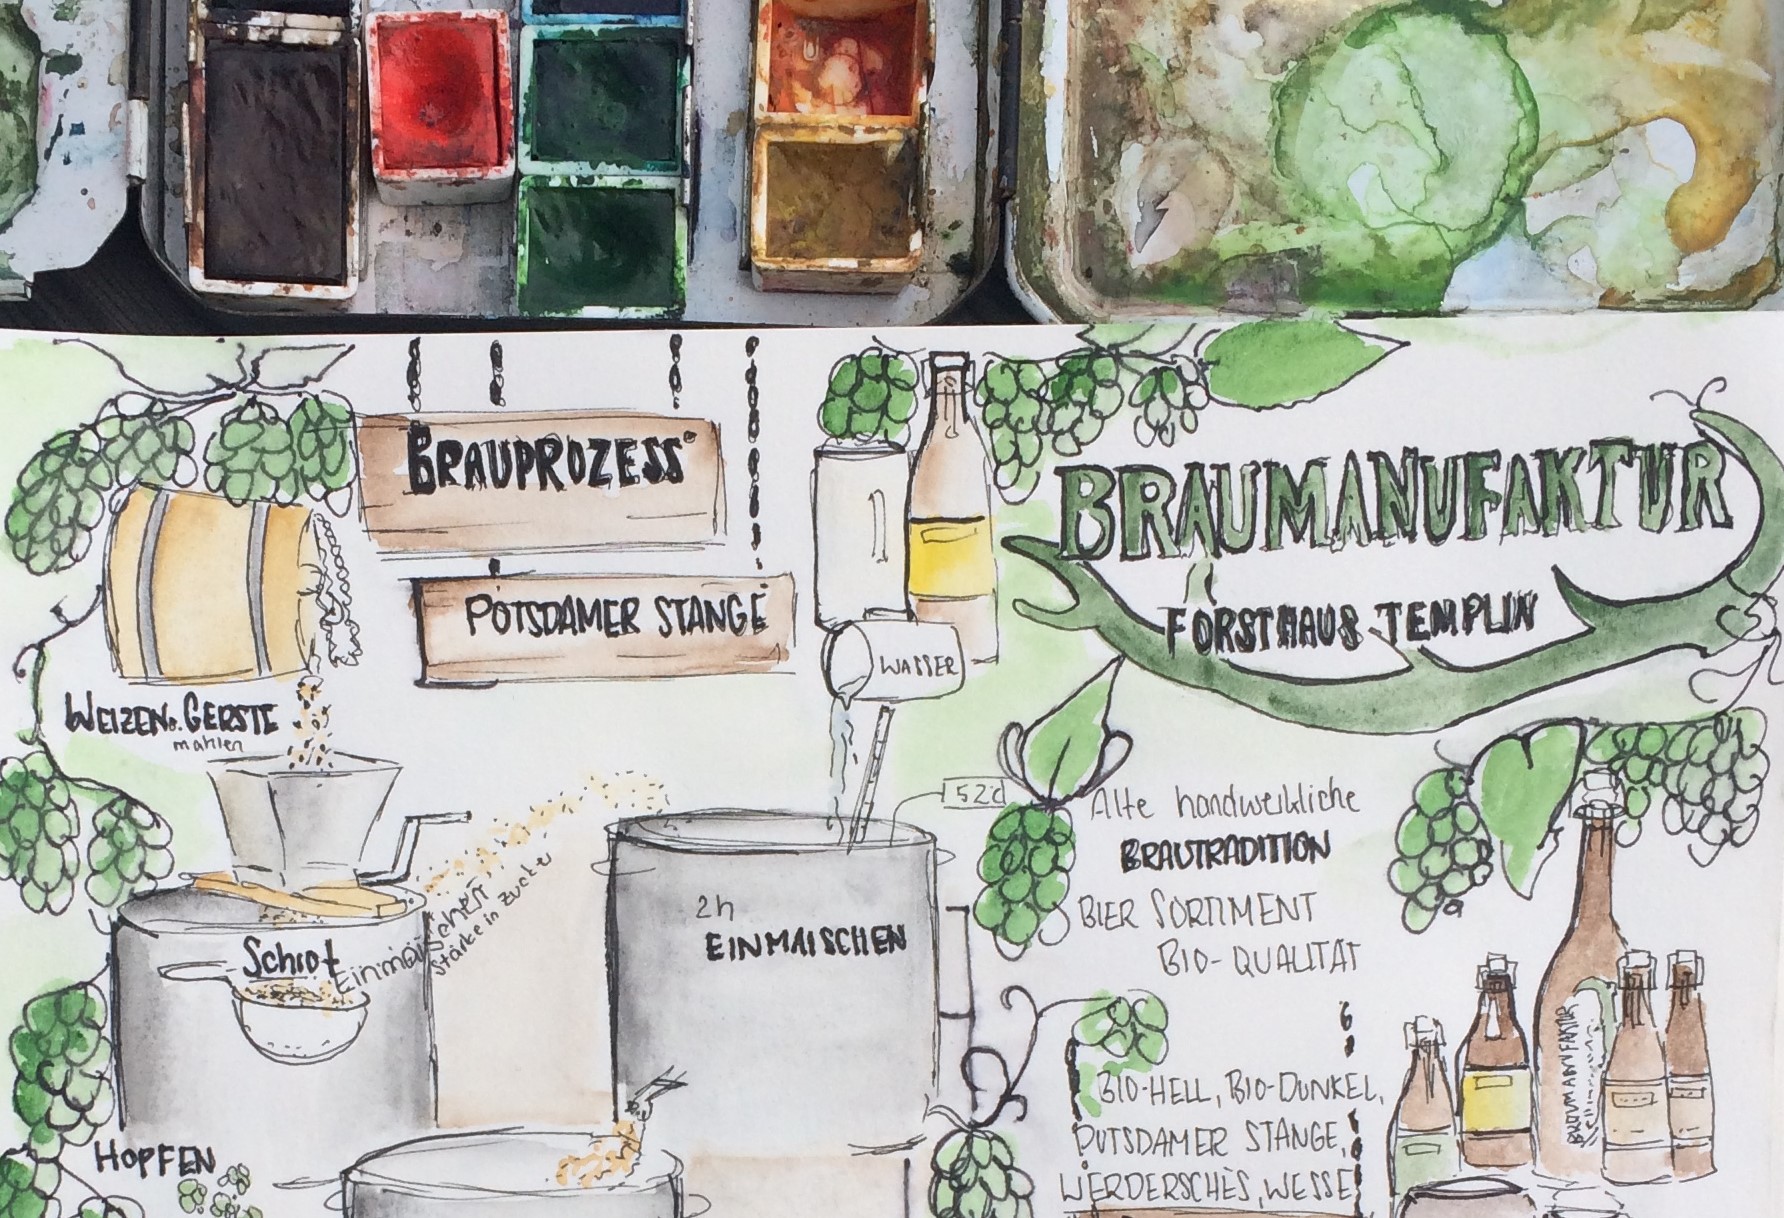 BRAUPROZESS
POTSDAMER STANGE
WEIZEN u. GERSTE
mahlen
Schrot
Einmaischen
Stärke in Zucker
WASSER
52C
2h
EINMAISCHEN
HOPFEN
BRAUMANUFAKTUR
FORSTHAUS TEMPLIN
Alte handwerkliche
BRAUTRADITION
BIER SORTIMENT
BIO-QUALITÄT
BIO-HELL, BIO-DUNKEL,
POTSDAMER STANGE,
WERDERSCHES, WESSE
BRAUMANUFAKTUR